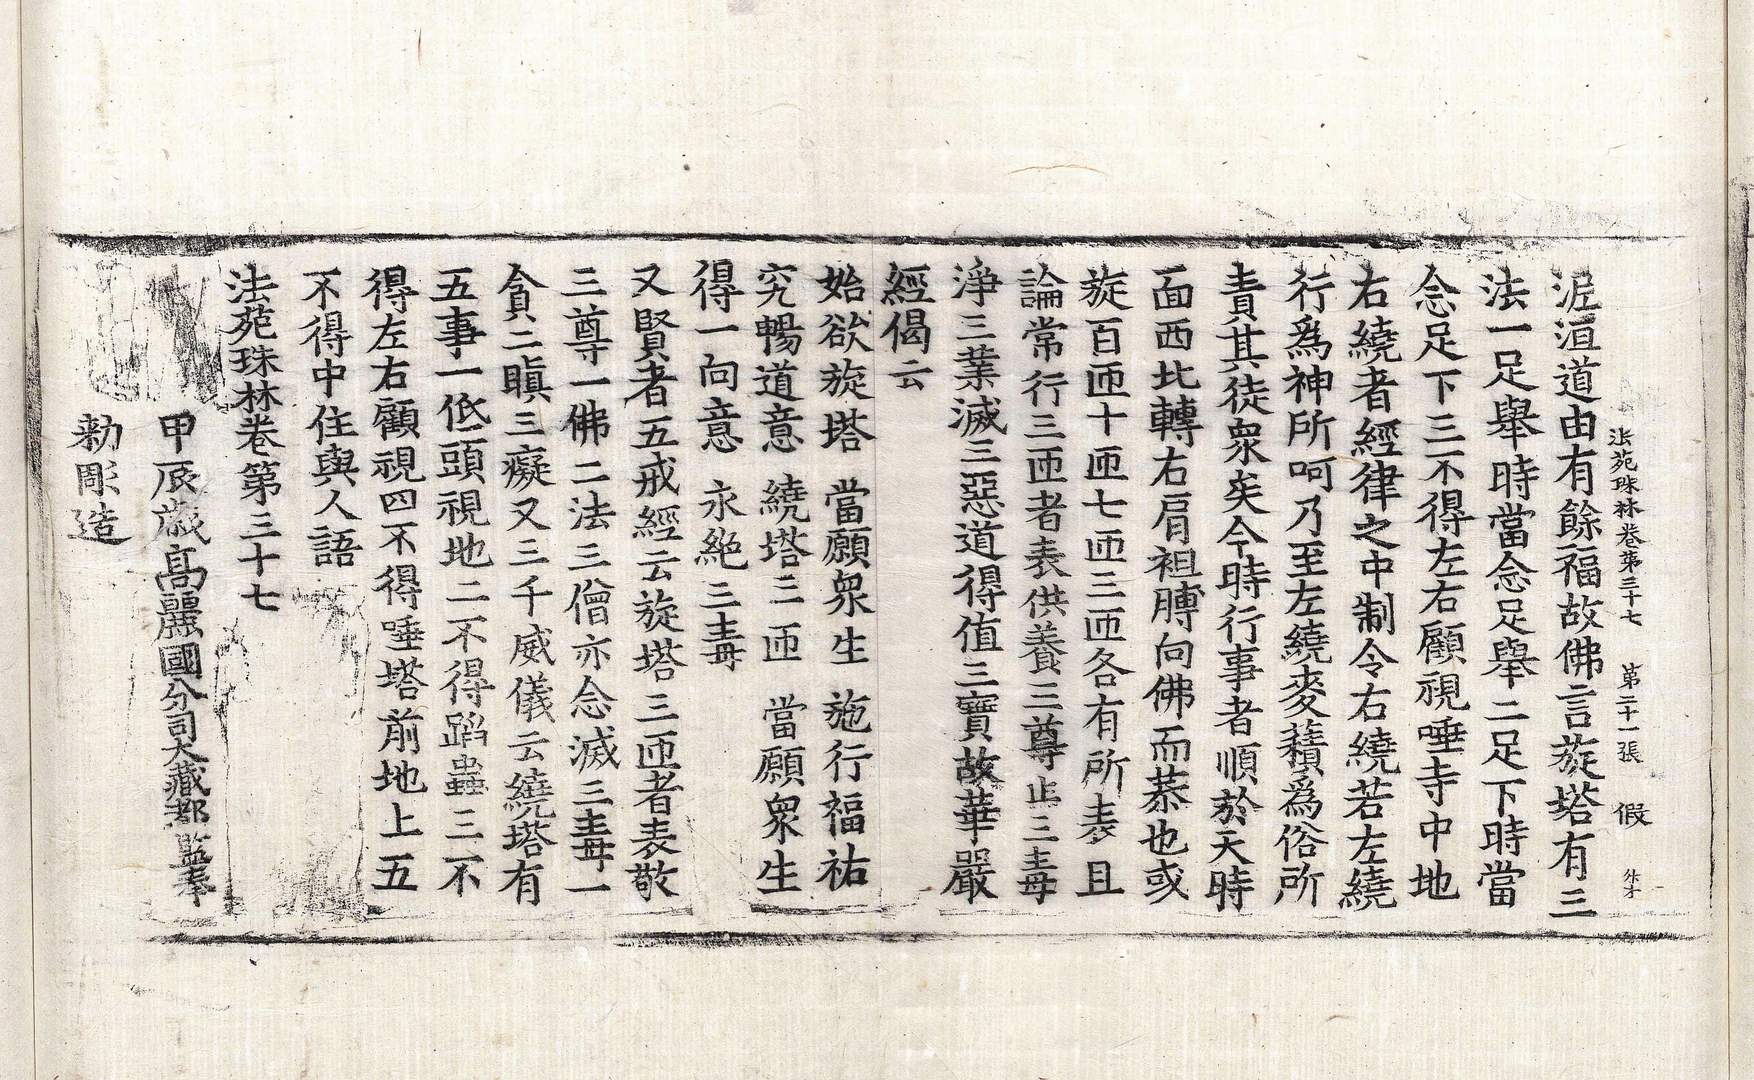 法苑珠林卷第三十七　第二十一張　假
泥洹道由有餘福故佛言旋塔有三
法一足舉時當念足舉二足下時當
念足下三不得左右顧視唾寺中地
右繞者經律之中制令右繞若左繞
行爲神所呵乃至左繞麥𧂐爲俗所
責其徒衆矣今時行事者順於天時
面西北轉右肩袒膊向佛而恭也或
旋百匝十匝七匝三匝各有所表且
論常行三匝者表供養三尊止三毒
淨三業滅三惡道得值三寶故華嚴
經偈云
始欲旋塔　當願衆生　施行福祐
究暢道意　繞塔三匝　當願衆生
得一向意　永絶三毒
又賢者五戒經云旋塔三匝者表敬
三尊一佛二法三僧亦念滅三毒一
貪二瞋三癡又三千威儀云繞塔有
五事一低頭視地二不得蹈蟲三不
得左右顧視四不得唾塔前地上五
不得中住與人語
法苑珠林卷第三十七
甲辰歲高麗國分司大藏都監奉
勅彫造